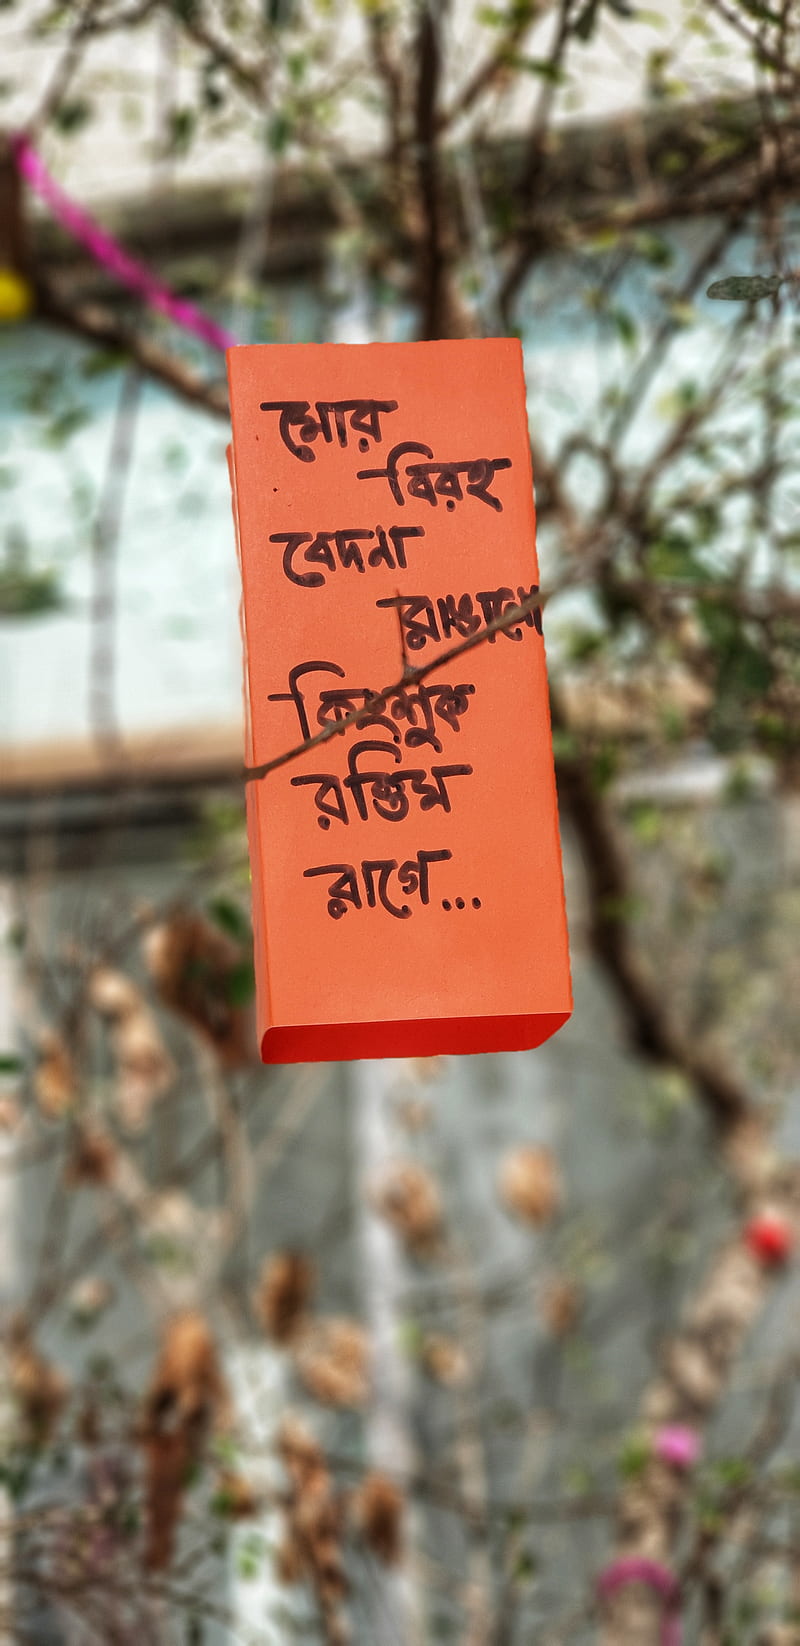 মোর
বিরহ
বেদনা
রাঙালো
কিংশুক
রক্তিম
রাগে...